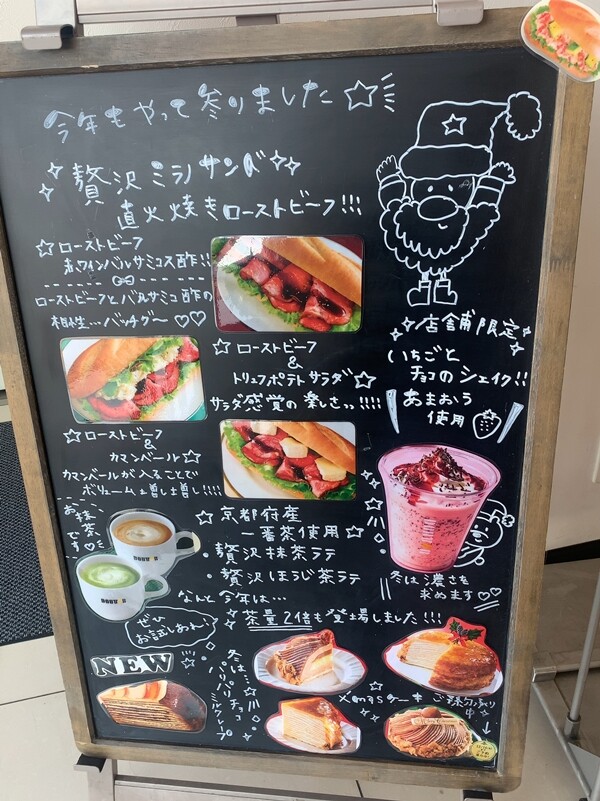 今年もやって参りました☆
贅沢ミラノサンド
直火焼きローストビーフ!!!
☆ローストビーフ
赤ワインバルサミコス酢!!
ローストビーフとバルサミコ酢の
相性…バッチグ〜♡♡
☆ローストビーフ
&
トリュフポテトサラダ☆
サラダ感覚の楽しさっ!!!!
☆ローストビーフ
&
カマンベール☆
カマンベールが入ることで
ボリューム増し増し!!!!
店舗限定
いちごと
チョコのシェイク!!
あまおう
使用
冬は濃さを
求めます♡♡
お抹茶です♡
☆京都府産
一番茶使用☆
・贅沢抹茶ラテ
・贅沢ほうじ茶ラテ
なんと今年は…
茶量2倍も登場しました!!!
ぜひ
お試しあれ!
NEW
冬は…
パリパリチョコ
ミルクレープ
☆
Xmasケーキ ご予約承り
中☆